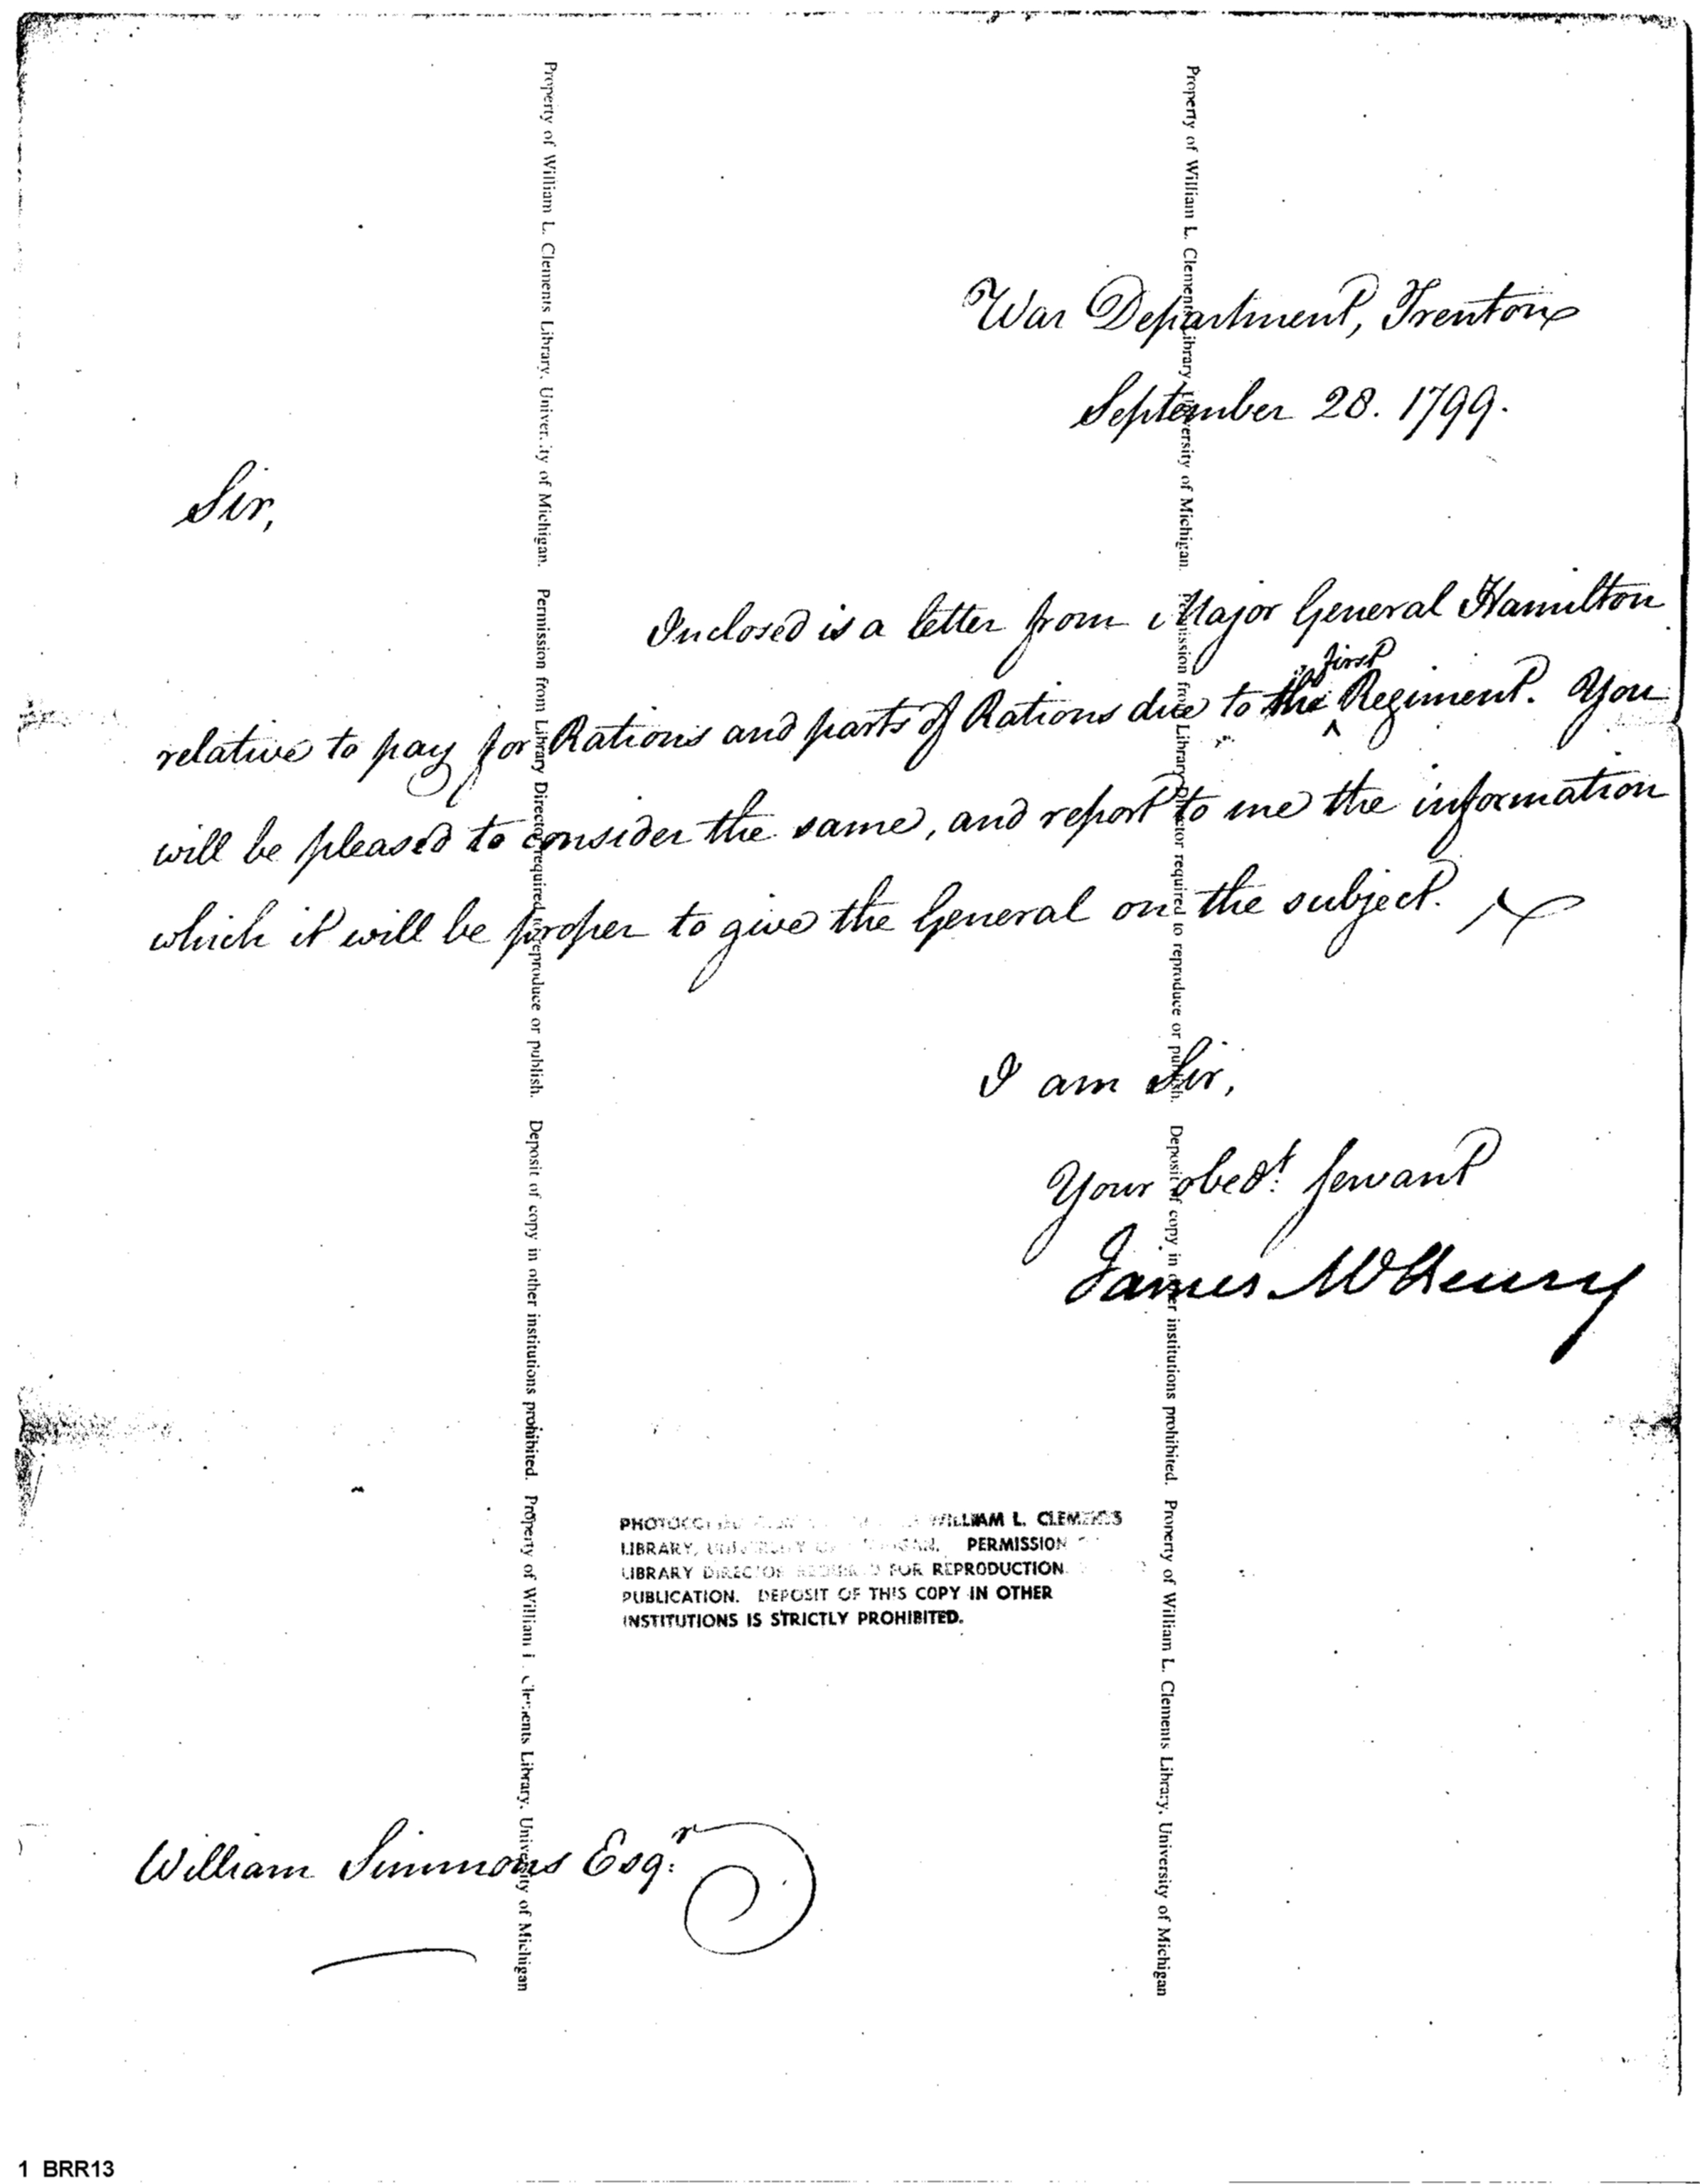 War Department, Trenton
September 28. 1799.
Sir,
Inclosed is a letter from Major General Hamilton
first
relative to pay for Rations and parts of Rations due to the ^ Regiment. You
will be pleased to consider the same, and report to me the information
which it will be proper to give the General on the subject.
I am Sir,
Your obedt. servant
James McHenry
PHOTOCO WILLIAM L. CLEMENTS
LIBRARY, PERMISSION
LIBRARY DIRECTOR FOR REPRODUCTION
PUBLICATION. DEPOSIT OF THIS COPY IN OTHER
INSTITUTIONS IS STRICTLY PROHIBITED.
William Simmons Esqr.
Property of William L. Clements Library, University of Michigan. Permission from Library Director required to reproduce or publish. Deposit of copy in other institutions prohibited. Property of William L. Clements Library, University of Michigan
Property of William L. Clements Library, University of Michigan. Permission from Library Director required to reproduce or publish. Deposit of copy in other institutions prohibited. Property of William L. Clements Library, University of Michigan
1 BRR13